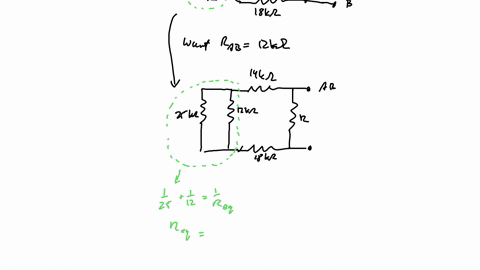 18kΩ
B
want R_AB = 12kΩ
14kΩ
AB
25kΩ
12kΩ
R
18kΩ
1/25 + 1/12 = 1/R_eq
R_eq =